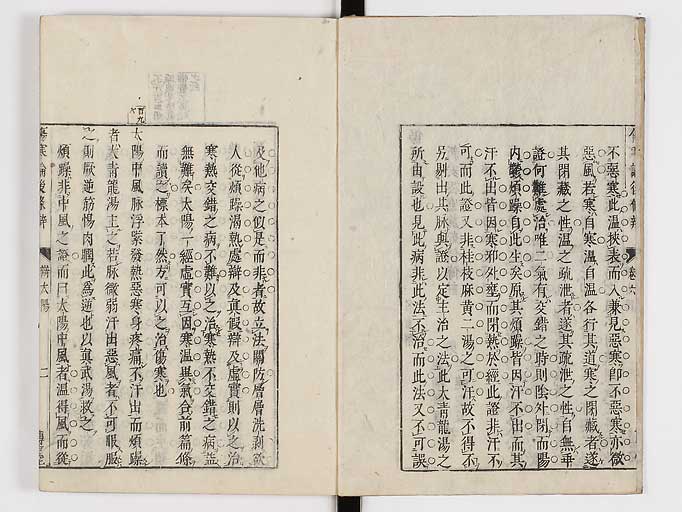 不惡寒此溫挾表而入兼見惡寒卽不惡寒亦微
惡風若寒自寒溫自溫各行其道寒之閉藏者遂
其閉藏之性溫之疏泄者遂其疏泄之性自無乖
證何難處治唯二氣有交錯之時則陰外閉而陽
內鬱煩躁自此生矣原其煩躁皆因汗不出而其
汗不出皆因寒邪外壅而閉熱於經此證非汗不
可而此證又非桂枝麻黃二湯之可汗故不得不
另剔出其脉與證以定主治之法此大青龍湯之
所由設也見此病非此法不治而此法又不可誤
及他病之似是而非者故立法關防層層洗剥欲
人從煩躁渴熱處辯及眞假辯及虛實則以之治
寒熱交錯之病不難以之治寒熱不交錯之病益
無難矣太陽一經虛實互因寒溫異氣合前篇條
而讀之標本了然方可以之治傷寒也
太陽中風脉浮緊發熱惡寒身疼痛不汗出而煩躁
者大青龍湯主之若脉微弱汗出惡風者不可服服
之則厥逆筋惕肉瞤此爲逆也以眞武湯救之
煩躁非中風之證而曰太陽中風者溫得風而從
傷寒論後條辨
辯太陽
二